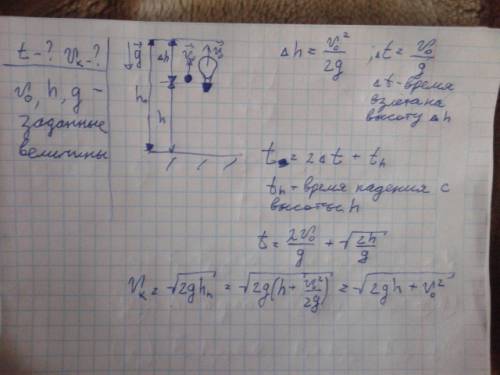 t-? vₖ-?
v₀, h, g -
заданные
величины
g
Δh
v₀
v₀
h
h
Δh = v₀²/2g ; Δt = v₀/g
Δt - время
взлета на
высоту Δh
t = 2Δt + tₕ
tₕ - время падения с
высоты h
t = 2v₀/g + √(2h/g)
vₖ = √(2ghₙ) = √(2g(h + v₀²/2g)) = √(2gh + v₀²)